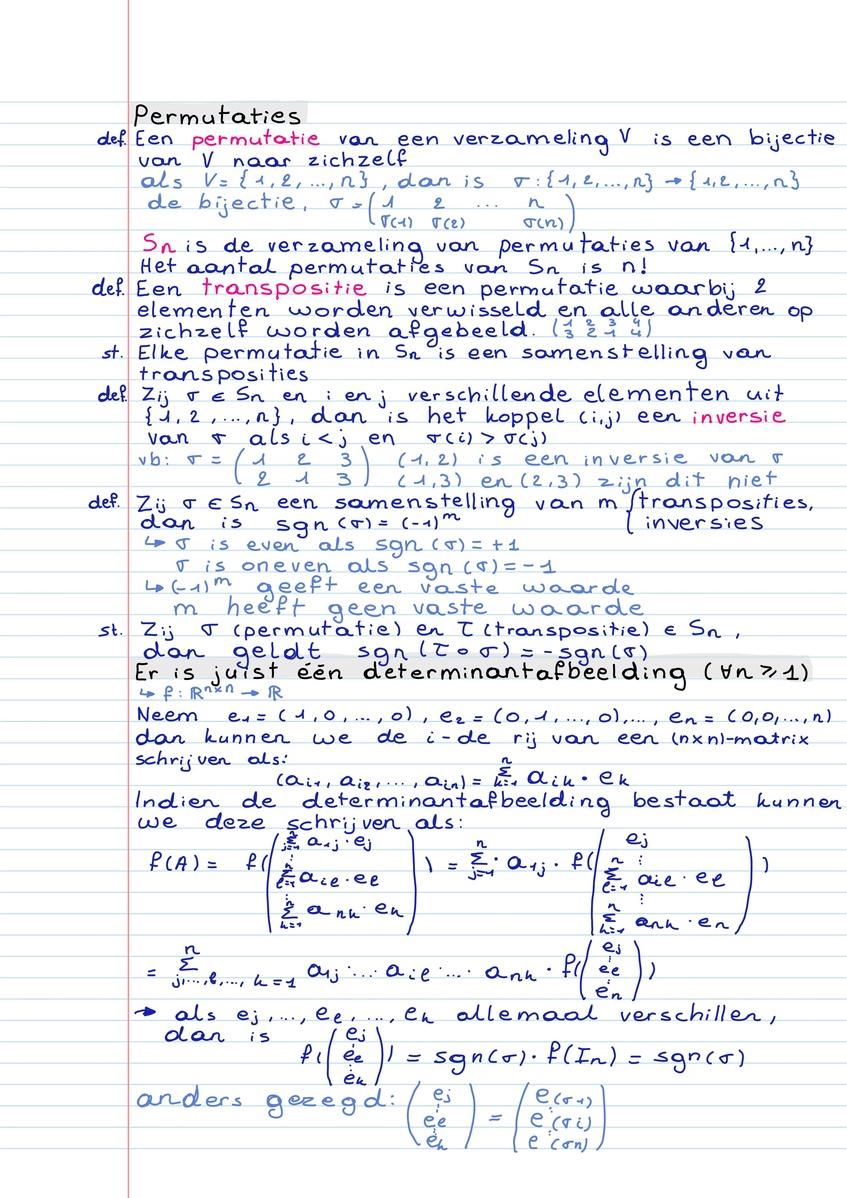 Permutaties
def. Een permutatie van een verzameling V is een bijectie
van V naar zichzelf
als V = {1,2, ..., n} , dan is σ : {1,2, ..., n} → {1,2, ..., n}
de bijectie, σ = ( 1 2 ... n
σ(1) σ(2) σ(n) )
Sn is de verzameling van permutaties van {1,..., n}
Het aantal permutaties van Sn is n!
def. Een transpositie is een permutatie waarbij 2
elementen worden verwisseld en alle anderen op
zichzelf worden afgebeeld. ( 1 2 3 4
3 2 1 4 )
st. Elke permutatie in Sn is een samenstelling van
transposities
def. Zij σ ∈ Sn en i en j verschillende elementen uit
{1, 2, ..., n}, dan is het koppel (i,j) een inversie
van σ als i < j en σ(i) > σ(j)
vb: σ = ( 1 2 3 (1,2) is een inversie van σ
2 1 3 ) (1,3) en (2,3) zijn dit niet
def. Zij σ ∈ Sn een samenstelling van m { transposities,
dan is sgn (σ) = (-1)^m inversies
↳ σ is even als sgn (σ) = +1
σ is oneven als sgn (σ) = -1
↳ (-1)^m geeft een vaste waarde
m heeft geen vaste waarde
st. Zij σ (permutatie) en τ (transpositie) ∈ Sn ,
dan geldt sgn (τ ∘ σ) = -sgn (σ)
Er is juist één determinantafbeelding (∀n ⩾ 1)
↳ f : ℝ^n×n → ℝ
Neem e1 = (1, 0, ..., 0) , e2 = (0, 1, ..., 0), ..., en = (0,0,..., n)
dan kunnen we de i-de rij van een (n×n)-matrix
schrijven als:
(ai1, ai2, ..., ain) = n Σ k=1 aik · ek
Indien de determinantafbeelding bestaat kunnen
we deze schrijven als:
f(A) = f( ( n Σ j=1 a1j · ej ⋮ n Σ l=1 ail · el ⋮ n Σ k=1 ank · ek ) ) = n Σ j=1 · a1j · f( ( ej ⋮ n Σ l=1 ail · el ⋮ n Σ k=1 ank · en ) )
= n Σ j,...,l,..., k=1 a1j · ... · ail · ... · ank · f( ( ej ⋮ el ⋮ en ) )
→ als ej, ..., el, ..., ek allemaal verschillen,
dan is
f( ( ej ⋮ el ⋮ ek ) ) = sgn(σ) · f(In) = sgn(σ)
anders gezegd: ( ej ⋮ el ⋮ ek ) = ( e(σ1) ⋮ e(σi) ⋮ e(σn) )